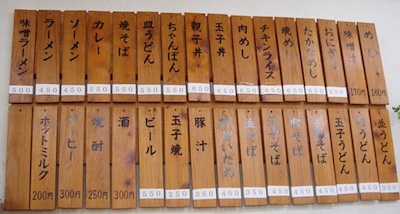 めし
180円
味噌汁
170円
おにぎり
たかなめし
650
焼めし
650
チキンライス
650
肉めし
650
玉子丼
650
親子丼
650
ちゃんぽん
550
皿うどん
550
焼そば
550
カレー
550
ソーメン
450
ラーメン
450
味噌ラーメン
500
並うどん
350
うどん
450
玉子うどん
450
そば
450
そば
450
そば
450
そば
350
いため
豚汁
350
玉子焼
250
ビール
550
酒
300円
焼酎
250円
コーヒー
300円
ホットミルク
200円